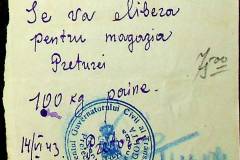 Se va elibera
pentru magazia
Preturei
100 kg paine.
14/VI 43
Guvernatorului Civil al